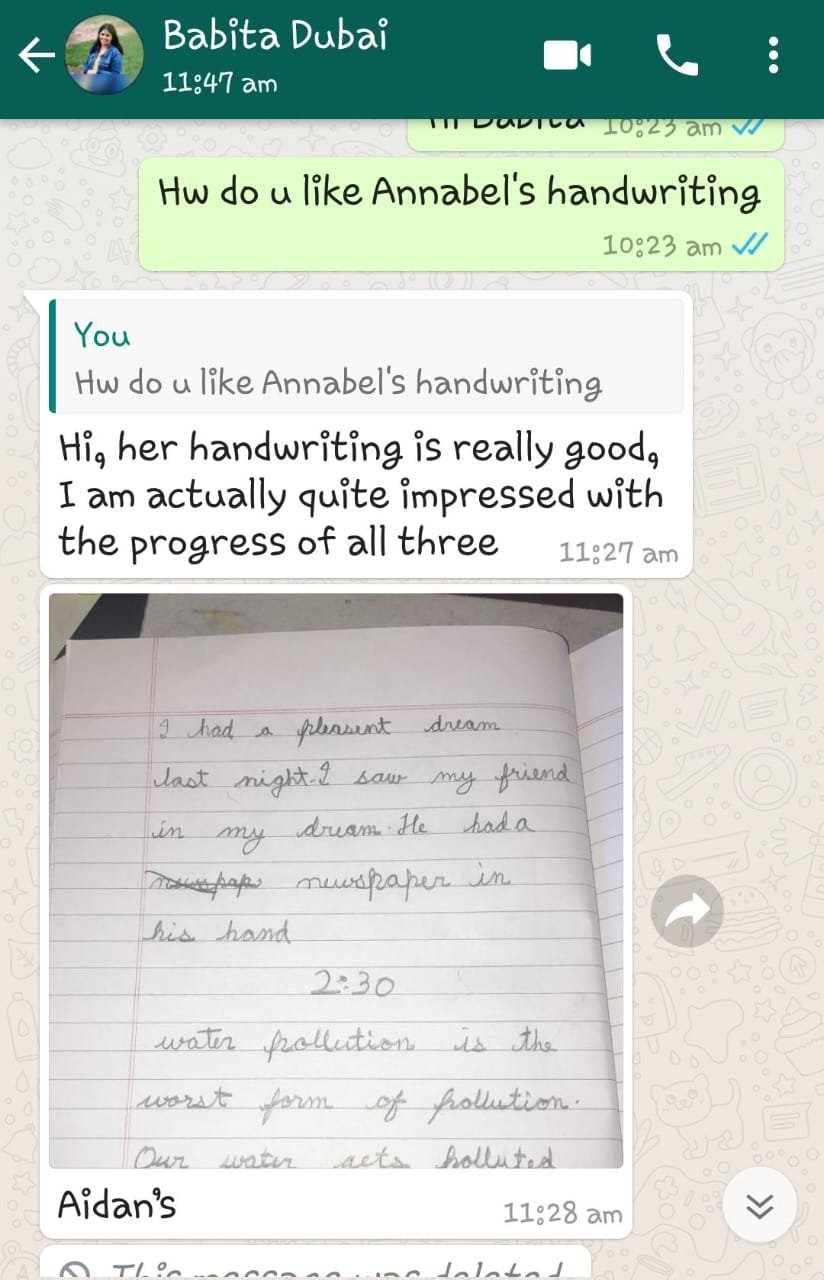 Babita Dubai
11:47 am
Hi Babita 10:23 am
Hw do u like Annabel's handwriting
10:23 am
You
Hw do u like Annabel's handwriting
Hi, her handwriting is really good,
I am actually quite impressed with
the progress of all three 11:27 am
I had a pleasent dream
last night. I saw my friend
in my dream. He had a
newspaper in
his hand
2:30
water pollution is the
worst form of pollution.
Our water gets polluted
Aidan's 11:28 am
This message was deleted